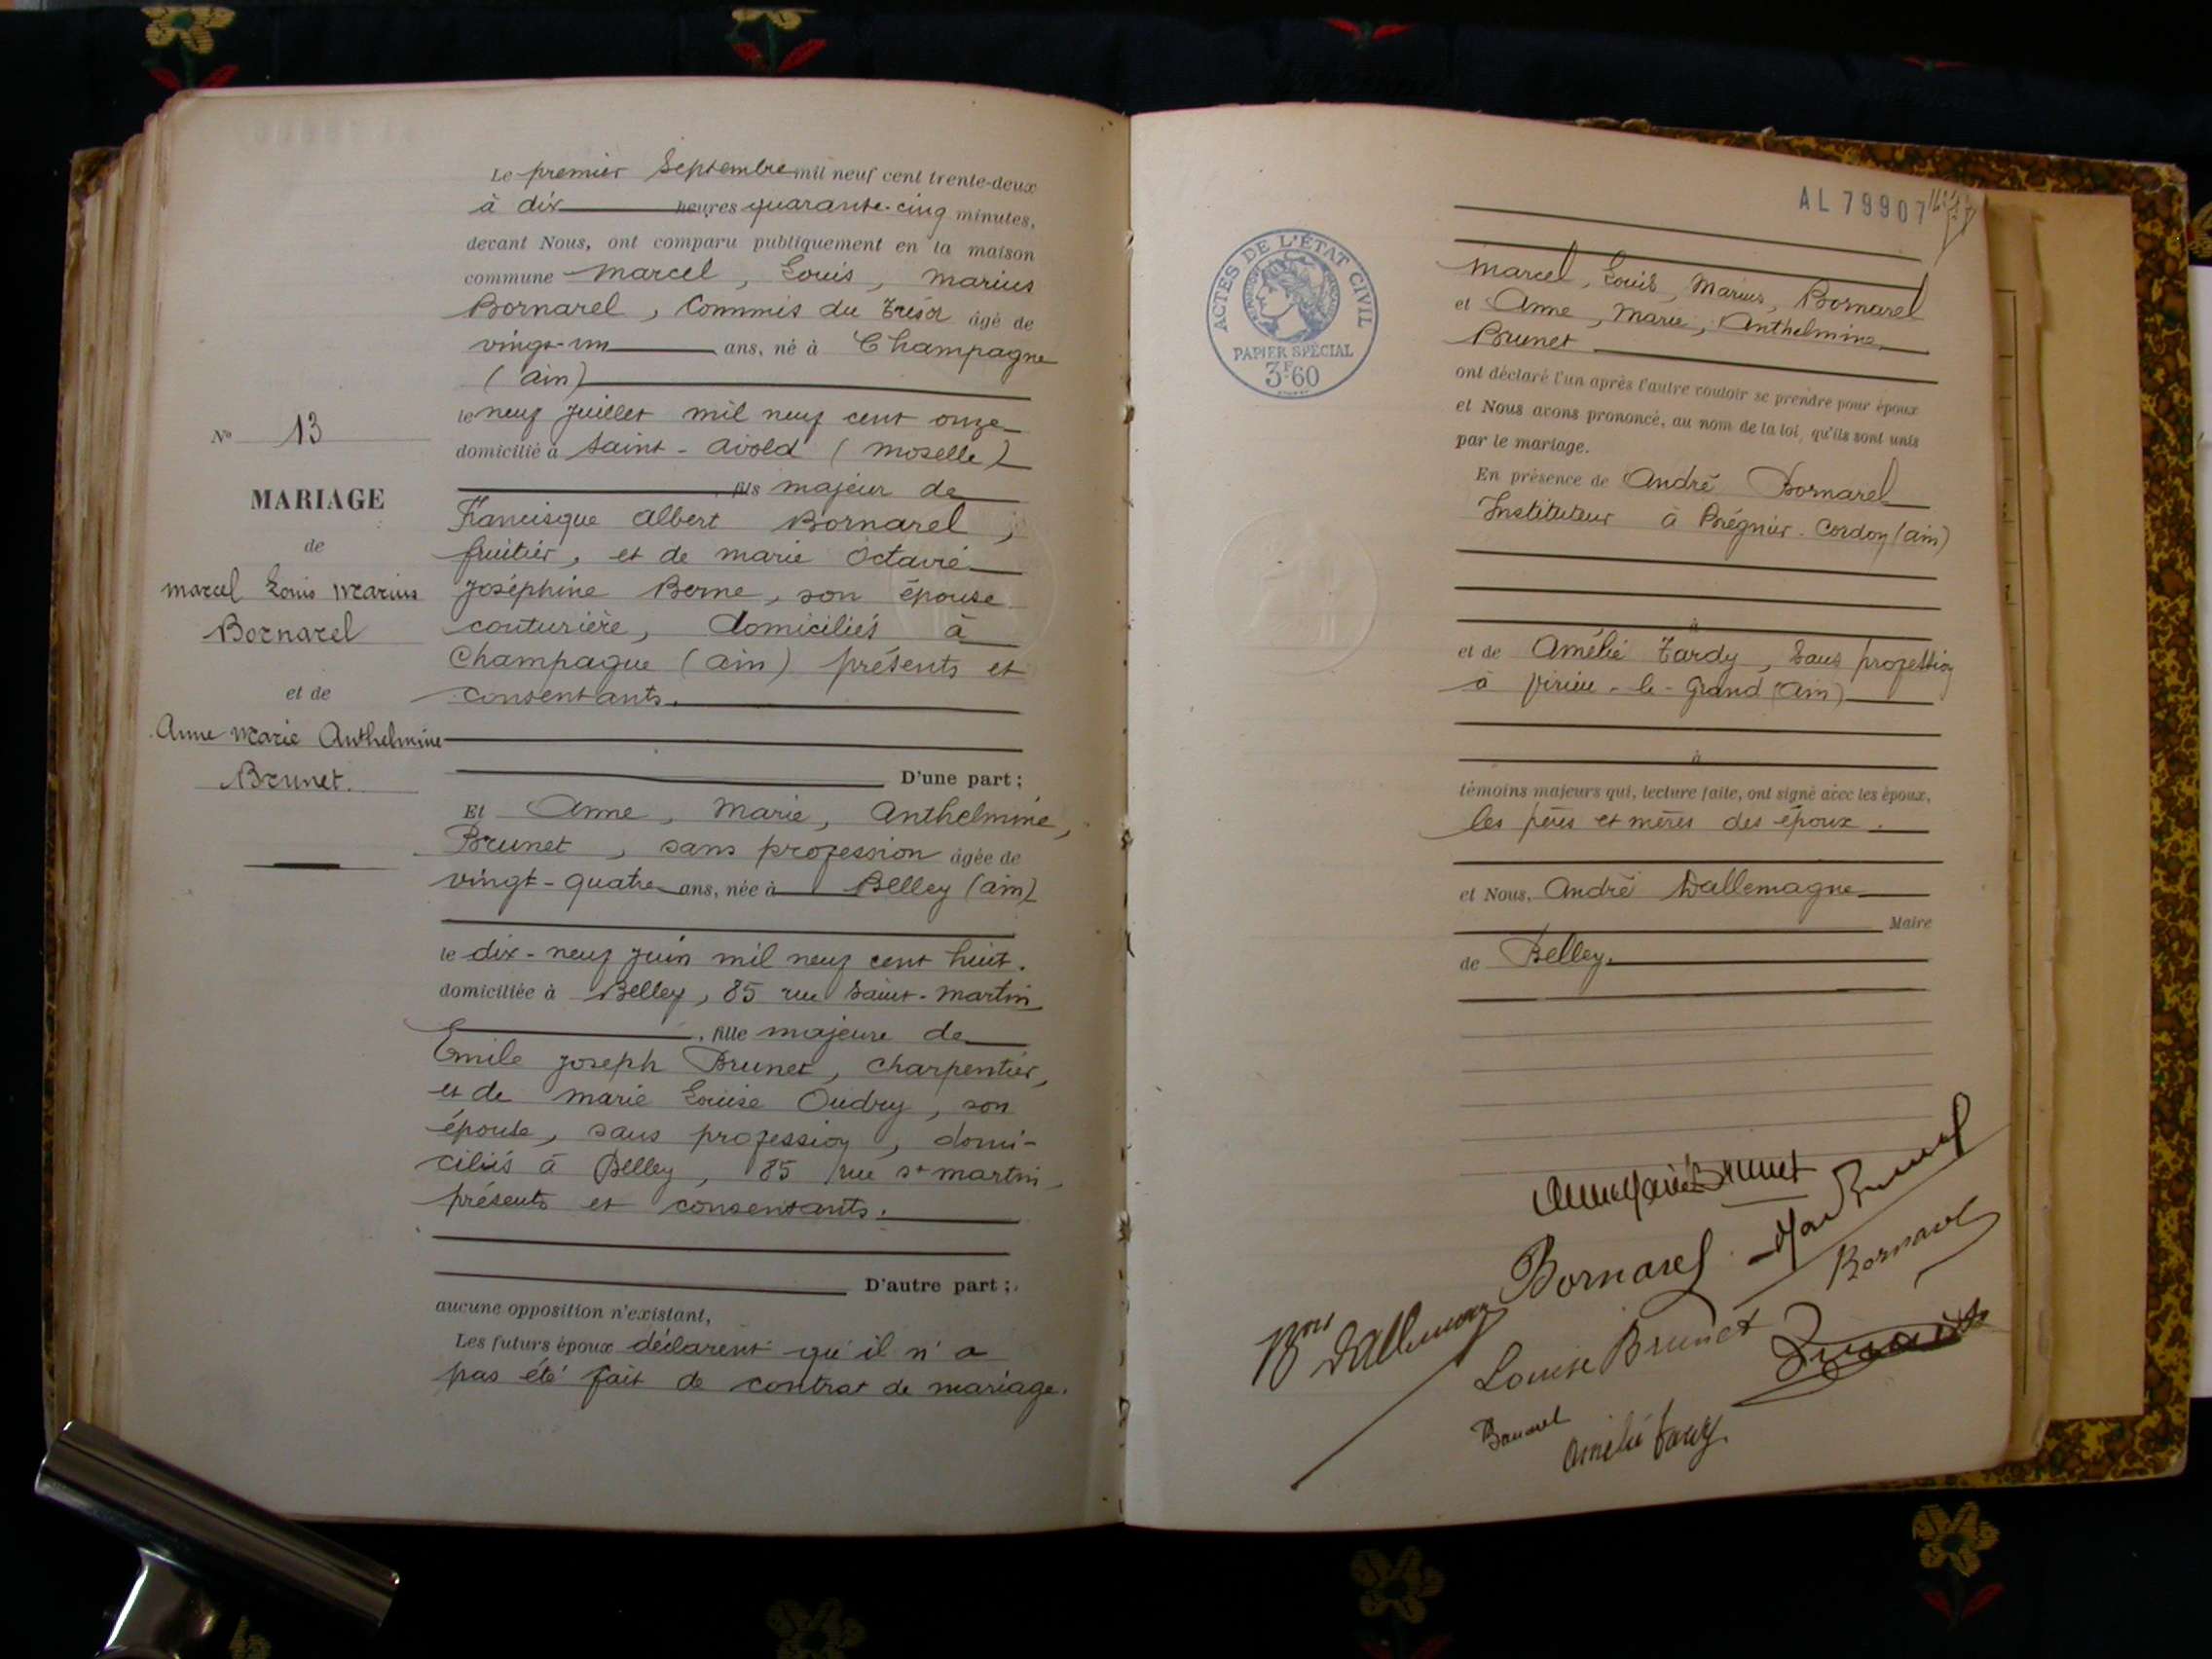 Le premier Septembre mil neuf cent trente-deux
à dix heures quarante-cinq minutes,
devant Nous, ont comparu publiquement en la maison
commune Marcel, Louis, Marius
Bornarel, Commis du Trésor âgé de
vingt-un ans, né à Champagne
(Ain)
le neuf Juillet mil neuf cent onze
domicilié à Saint-Avold (Moselle)
fils majeur de
Francisque Albert Bornarel,
fruitier, et de Marie Octavie
Joséphine Berne, son épouse
couturière, domiciliés à
Champagne (Ain) présents et
consentants.
D'une part ;
Et Anne, Marie, Anthelmine,
Brunet, sans profession âgée de
vingt-quatre ans, née à Belley (Ain)
le dix-neuf Juin mil neuf cent huit.
domiciliée à Belley, 85 rue Saint-Martin
, fille majeure de
Emile Joseph Brunet, charpentier,
et de Marie Louise Oudry, son
épouse, sans profession, domi-
ciliés à Belley, 85 rue St Martin,
présents et consentants.
D'autre part ;
aucune opposition n'existant,
Les futurs époux déclarent qu'il n'a
pas été fait de contrat de mariage.
N° 13
MARIAGE
de
Marcel Louis Marius
Bornarel
et de
Anne Marie Anthelmine
Brunet.
AL 79907
ACTES DE L'ÉTAT CIVIL
PAPIER SPÉCIAL
3F.60
Marcel, Louis, Marius, Bornarel
et Anne, Marie, Anthelmine,
Brunet
ont déclaré l'un après l'autre vouloir se prendre pour époux
et Nous avons prononcé, au nom de la loi, qu'ils sont unis
par le mariage.
En présence de André Bornarel
Instituteur à Brégnier-Cordon (Ain)
à
et de Amélie Tardy, Sans profession
à Virieu-le-Grand (Ain)
à
témoins majeurs qui, lecture faite, ont signé avec les époux,
les pères et mères des époux.
et Nous, André Dallemagne
Maire
de Belley.
Anne Marie Brunet
Bornarel
Bornarel
Louise Brunet
Amélie Tardy